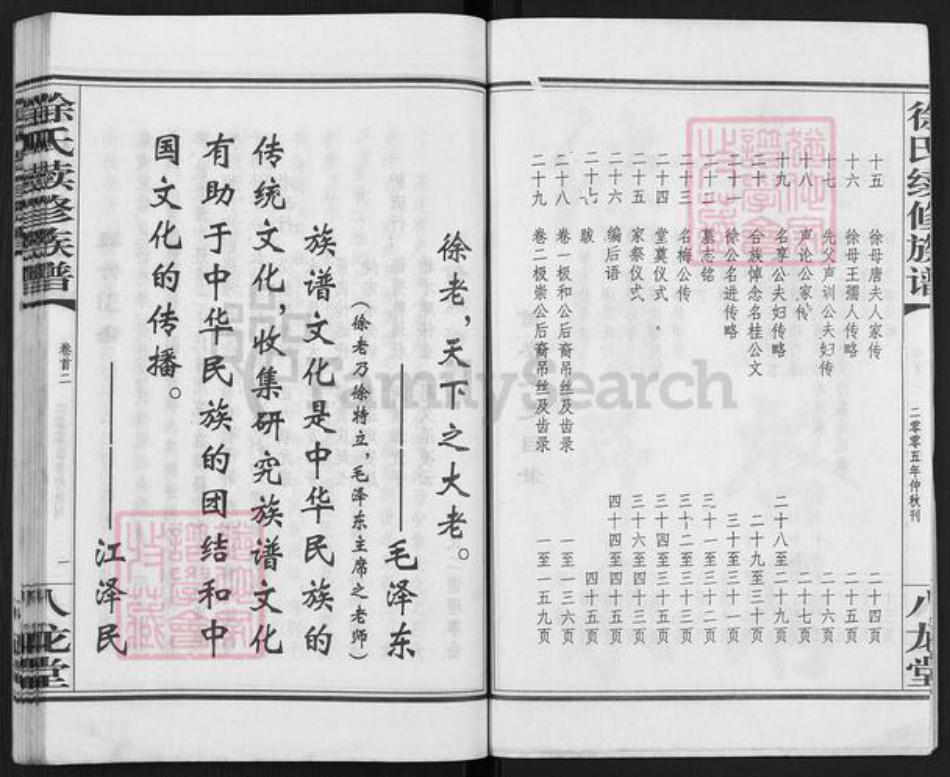 徐氏续修族谱
二零零五年仲秋刊
八龙堂
十五 徐母唐夫人家传 二十四页
十六 徐母王孺人传略 二十五页
十七 先父声训公夫妇传 二十六页
十八 声论公家传 二十七页
十九 名享公夫妇传略 二十八至二十九页
二十 合族悼念名桂公文 二十九至三十页
二十一 徐公名进传略 三十至三十一页
二十二 墓志铭 三十一至三十二页
二十三 名梅公传 三十二至三十三页
二十四 堂奠仪式 三十四至三十五页
二十五 家祭仪式 三十六至四十三页
二十六 编后语 四十四至四十五页
二十七 跋 四十五页
二十八 卷一极和公后裔吊丝及齿录 一至一三六页
二十九 卷二极崇公后裔吊丝及齿录 一至一五九页
徐老，天下之大老。
——毛泽东
（徐老乃徐特立，毛泽东主席之老师）
族谱文化是中华民族的
传统文化，收集研究族谱文化
有助于中华民族的团结和中
国文化的传播。
——江泽民
徐氏续修族谱
卷首二
一
八龙堂
FamilySearch